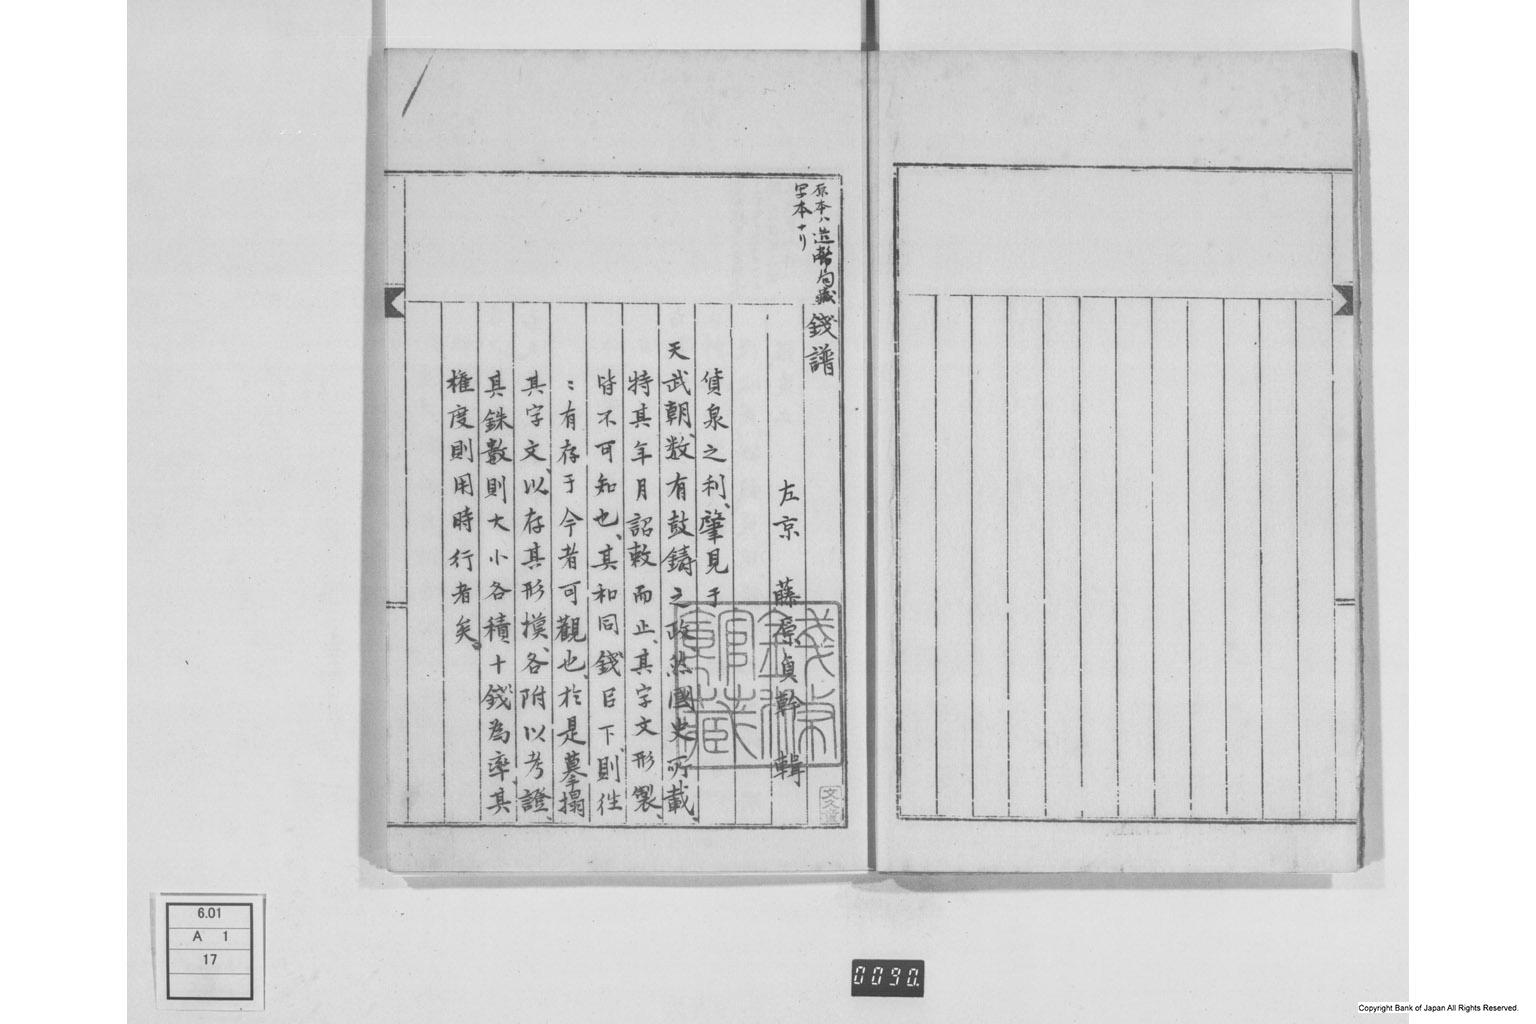 原本ハ造幣局蔵
写本ナリ
錢譜
左京 藤原貞幹 輯
貨泉之利、肇見于
天武朝、数有鼓鑄之政然國史所載、
特其年月詔敕而止、其字文形製、
皆不可知也、其和同錢㠯下、則徃
〻有存于今者可觀也、於是摹搨
其字文、以存其形摸、各附以考證、
其銖數則大小各積十錢為率、其
権度則用時行者矣。
錢幣館藏
6.01
A 1
17
0090.
Copyright Bank of Japan All Rights Reserved.